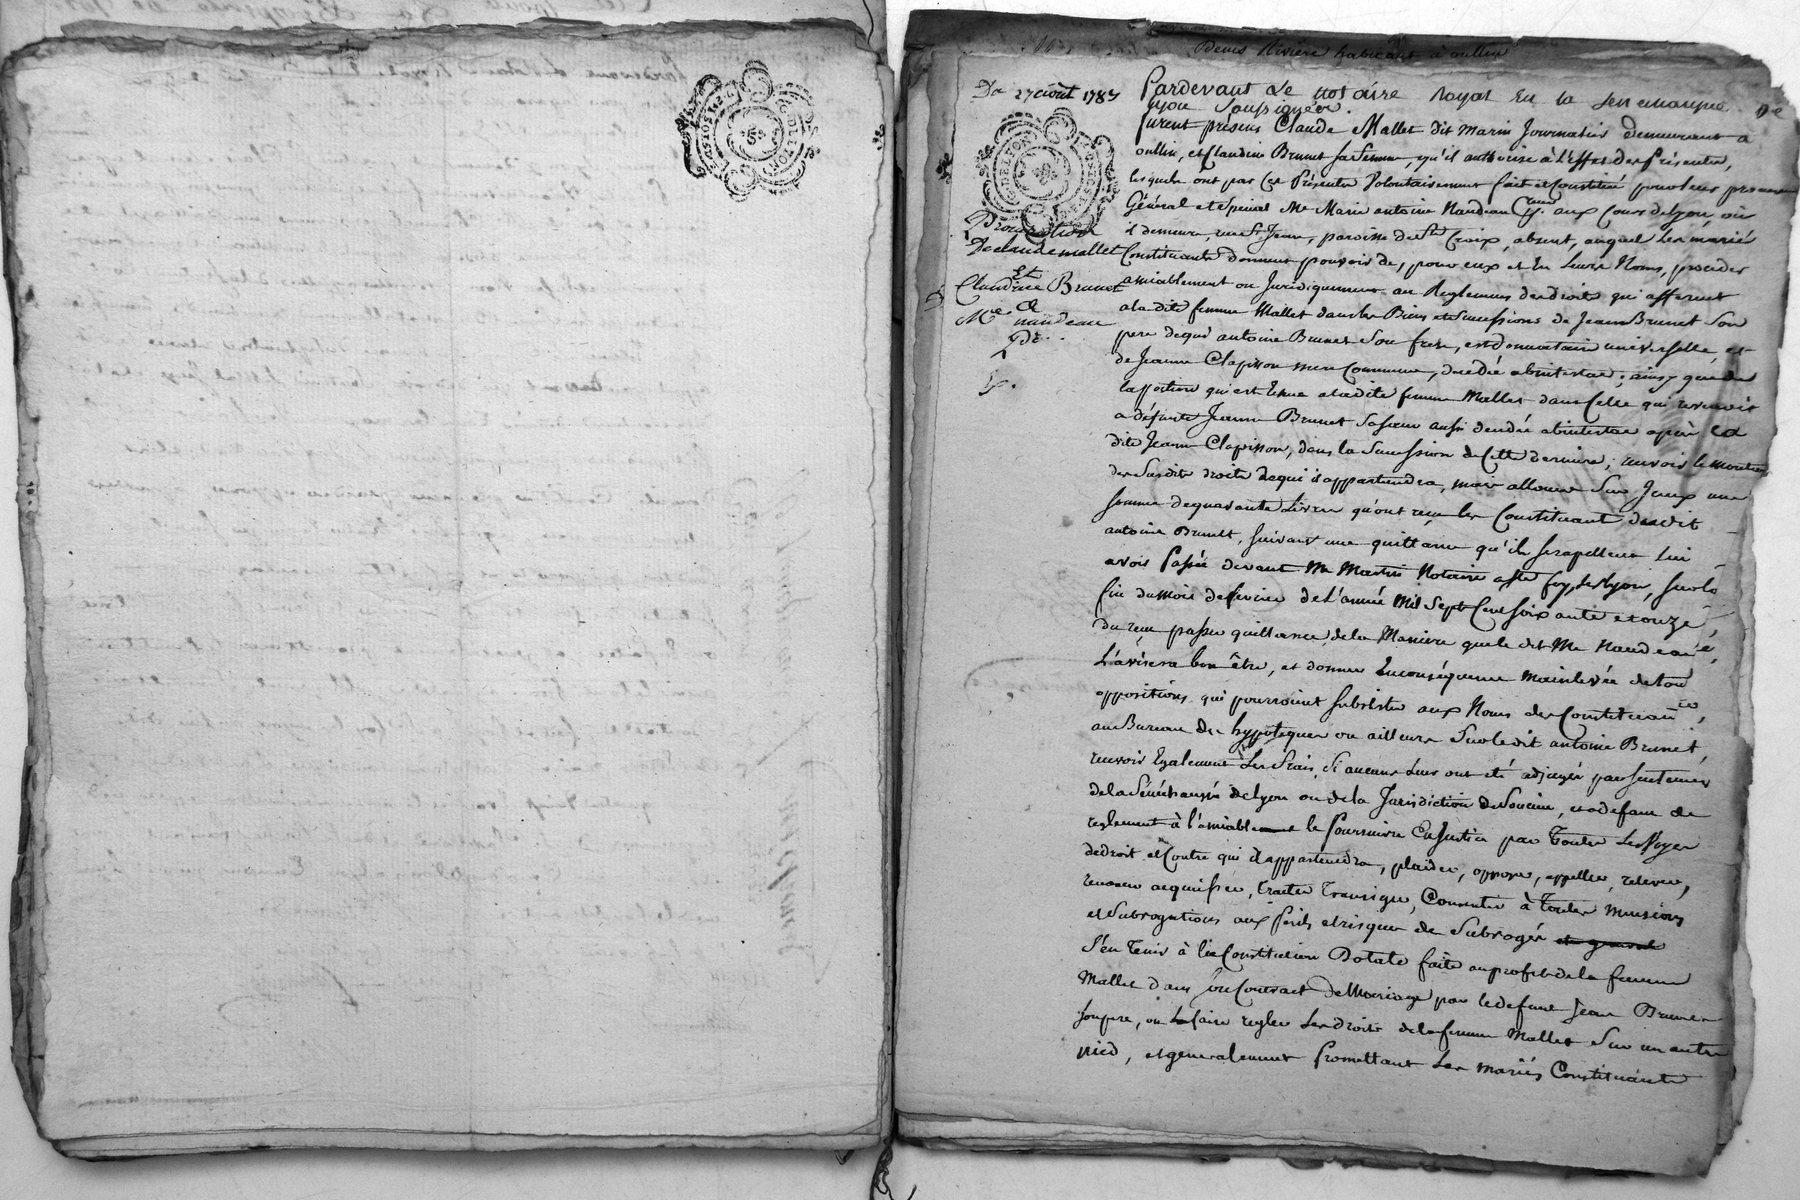 Denis Rivière habitant à oullin
Du 27 aout 1787
Procuration
De claude mallet
Et
Claudine Brunet
a
Me nandeau
DE LYON
Pardevant Le notaire Royal En la Senechaussée De
Lyon Soussignée.
furent présens Claude Mallet dit marin Journalier demeurant a
oullin, et Claudine Brunet sa femme, qu'il authorise à L'effet des Présentes,
lesquels ont par Ces Présentes Volontairement fait et Constitué pour leur procureur
Général et Special Me Marie antoine Nandeau aux Cours de Lyon, où
il demeure, rue St Jean, paroisse de Ste Croix, absent, auquel Les mariés
Constituants donnent pouvoir de, pour eux et En Leurs Noms, proceder
amiablement ou Juridiquement au Reglement des droits qui afferent
a ladite femme Mallet dans les Biens et Successions de Jean Brunet Son
pere de qui antoine Brunet Son frere, est donnataire universelle, et
de Jeanne Clapisson mere Commune, décédée abintestat; ainsy que de
la portion qui est Echue a ladite femme Mallet dans Celle qui revenoit
a défunte Jeanne Brunet Sa soeur aussi décédée abintestat après lad
dite Jeanne Clapisson, dans la Succession de Cette derniere; recevoir le montant
des Susdits droits de qui il appartiendra, mais allouer Sur Iceux une
somme de quarante Livres qu'ont reçu les Constituant dudit
antoine Brunet, suivant une quittance qu'ils se rapellent lui
avoir Passée devant Me Martin Notaire a Ste foy les Lyon, sur la
fin du mois de fevrier de L'année Mil Sept Cent soixante et onze,
du reçu passer quittance de la Maniere que le dit Me Nandeau
L'avisera bon être, et donner En conséquence mainlevée de tou
oppositions qui pourroient subsister aux Noms des Constituants,
au Bureau des hypoteques ou ailleurs Sur le dit antoine Brunet,
recevoir Egalement Les frais, Si aucuns Leur ont été adjugés par sentences
de la Sénéchaussée de Lyon ou de la Jurisdiction de Soucieu, et a defaut de
reglement à l'amiable le Poursuivre En Justice par Toutes Les Voyes
de droit et Contre qui il appartiendra, plaider, opposer, appeller, relever,
renoncer acquiescer, traiter Transiger, Consentir à Toutes Missions
et Subrogations aux perils et risques de Subrogés
S'en Tenir à la Constitution Dotale faite au profit de la femme
Mallet dans Son Contract de Mariage par le defunt Jean Brunet
Son pere, ou faire regler Les droits de la femme Mallet Sur un autre
pied, et generalement Promettant Les mariés Constituants